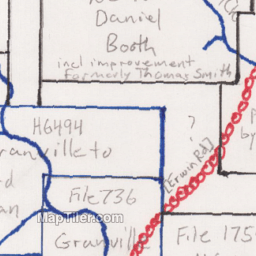 Daniel
Booth
incl improvement
formerly Thomas Smith
H6494
Granville to
?
[Erwin Rd]
File 736
Granville
File 175
MapTiler.com